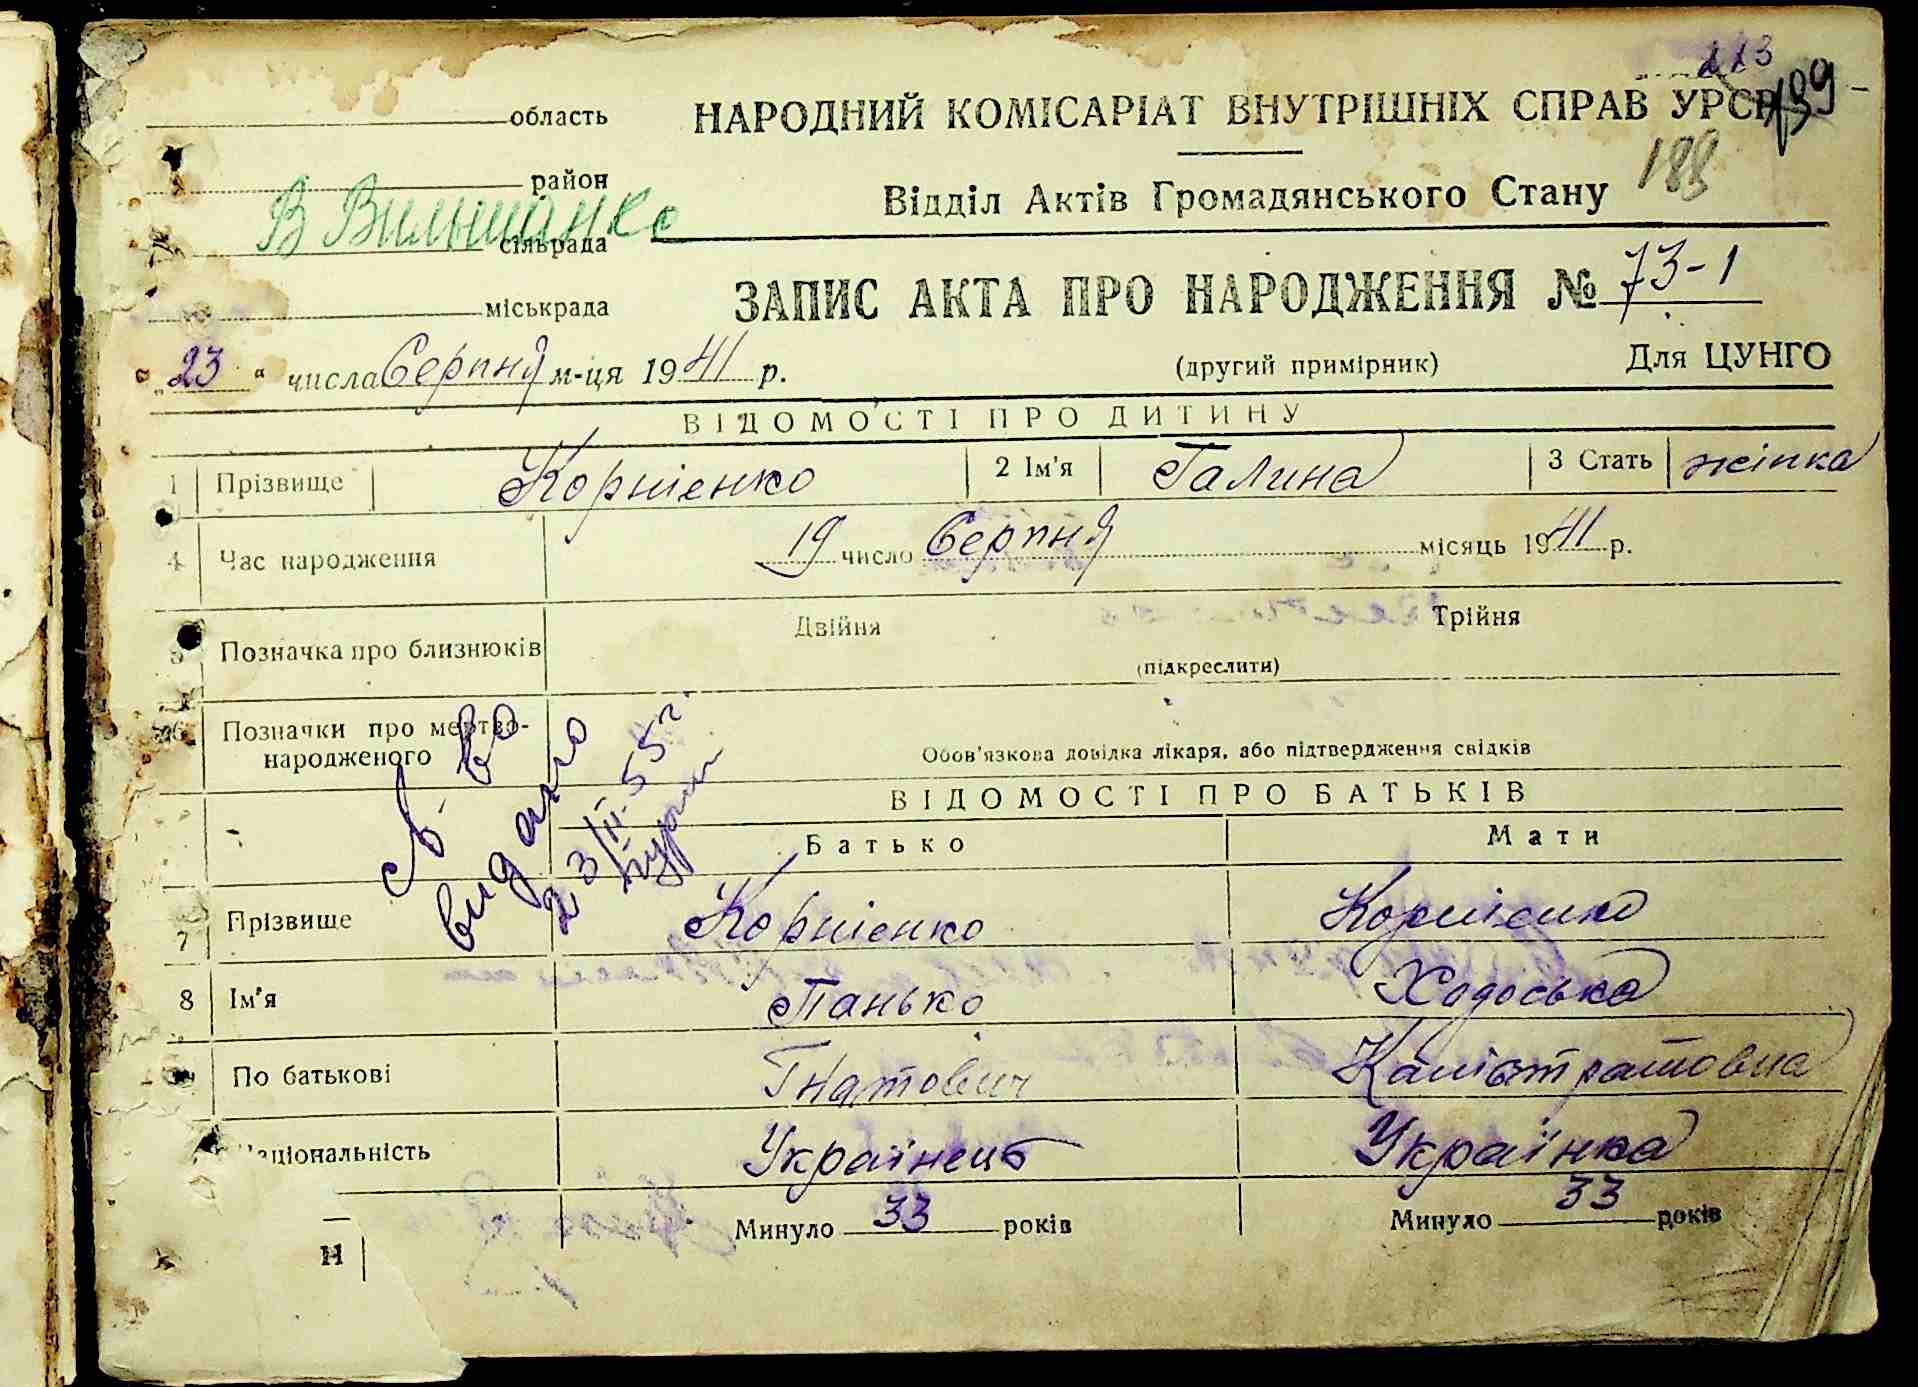 113
139
область
НАРОДНИЙ КОМІСАРІАТ ВНУТРІШНІХ СПРАВ УРСР
188
район
Відділ Актів Громадянського Стану
В Вильшанка
сільрада
ЗАПИС АКТА ПРО НАРОДЖЕННЯ № 73-1
міськрада
"23" числа Серпня м-ця 1941 р.
(другий примірник) Для ЦУНГО
ВІДОМОСТІ ПРО ДИТИНУ
1 Прізвище Корнієнко 2 Ім'я Галина 3 Стать жінка
4 Час народження 19 число Серпня місяць 1941 р.
5 Позначка про близнюків Двійня Трійня
(підкреслити)
6 Позначки про мертво-
народженого Обов'язкова довідка лікаря, або підтвердження свідків
С-во
видано
23/III.55 г.
ВІДОМОСТІ ПРО БАТЬКІВ
Батько Мати
7 Прізвище Корнієнко Корнієнко
8 Ім'я Панько Ходоська
По батькові Гнатович Калістратовна
Національність Українець Українка
Минуло 33 років Минуло 33 років